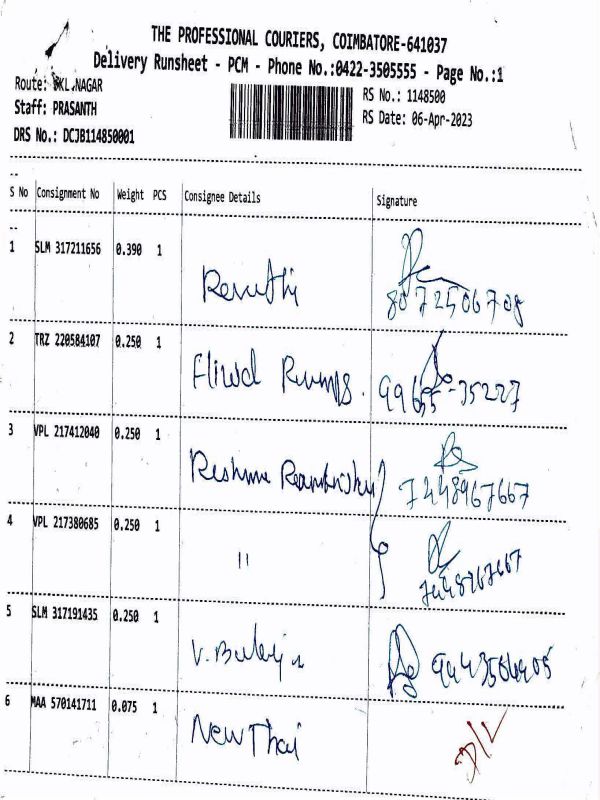 THE PROFESSIONAL COURIERS, COIMBATORE-641037
Delivery Runsheet - PCM - Phone No.:0422-3505555 - Page No.:1
Route: KL.NAGAR
Staff: PRASANTH
DRS No.: DCJB114850001
RS No.: 1148500
RS Date: 06-Apr-2023
S No Consignment No Weight PCS Consignee Details Signature
1 SLM 317211656 0.390 1 Revathi 8072506708
2 TRZ 220584107 0.250 1 99655-35227
3 VPL 217412040 0.250 1 Reshma 7448967667
4 VPL 217380685 0.250 1 11 7448967667
5 SLM 317191435 0.250 1 V. Balaji 9443564405
6 MAA 570141711 0.075 1 New Thai